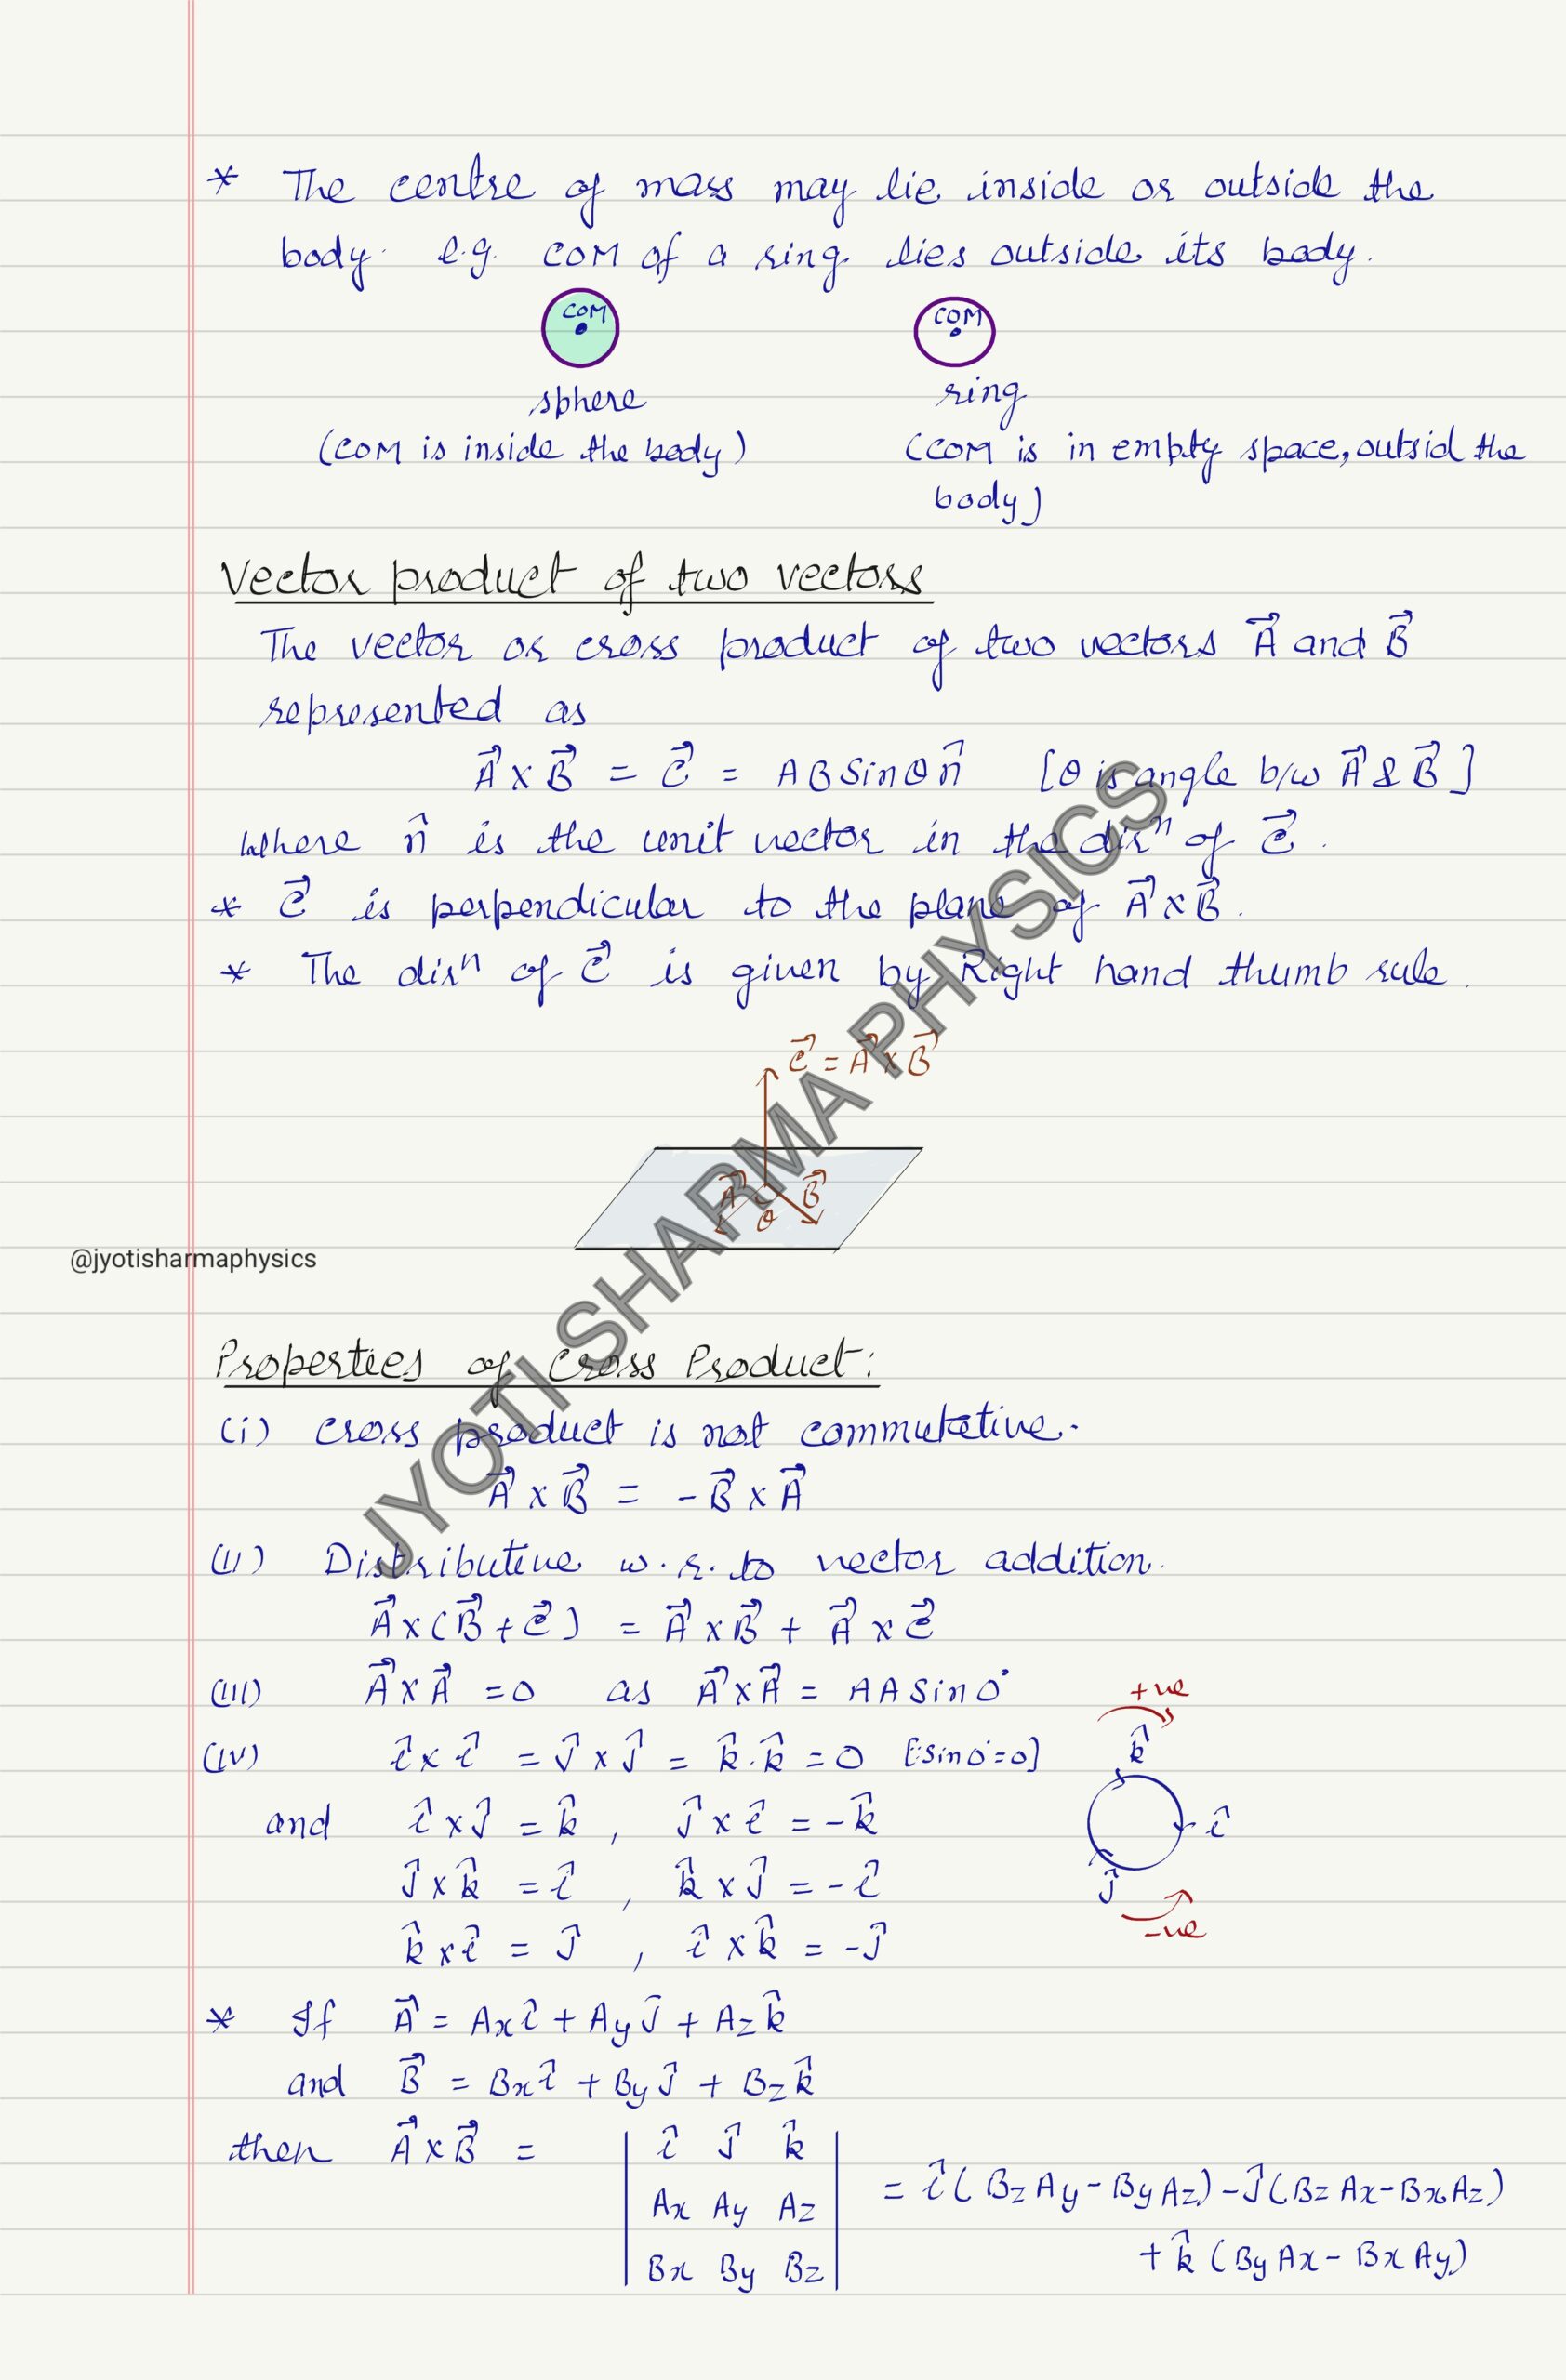 * The centre of mass may lie inside or outside the
body. e.g. COM of a ring lies outside its body.
COM COM
sphere ring
(COM is inside the body) (COM is in empty space, outsid the
body)
Vector product of two vectors
The vector or cross product of two vectors A⃗ and B⃗
represented as
A⃗ × B⃗ = C⃗ = AB Sinθ n̂ [θ is angle b/w A⃗ & B⃗]
where n̂ is the unit vector in the dirⁿ of C⃗.
* C⃗ is perpendicular to the plane of A⃗ × B⃗.
* The dirⁿ of C⃗ is given by Right hand thumb rule.
C⃗ = A⃗ × B⃗
A⃗ θ B⃗
@jyotisharmaphysics
JYOTI SHARMA PHYSICS
Properties of Cross Product:
(i) Cross product is not commutative.
A⃗ × B⃗ = -B⃗ × A⃗
(ii) Distributive w.r.to vector addition.
A⃗ × (B⃗ + C⃗) = A⃗ × B⃗ + A⃗ × C⃗
(iii) A⃗ × A⃗ = 0 as A⃗ × A⃗ = AA Sin0°
+ve
(iv) î × î = ĵ × ĵ = k̂ · k̂ = 0 [∵ sin0° = 0]
k̂
and î × ĵ = k̂ , ĵ × î = -k̂
î
ĵ × k̂ = î , k̂ × ĵ = -î
ĵ
-ve
k̂ × î = ĵ , î × k̂ = -ĵ
* If A⃗ = Axî + Ayĵ + Azk̂
and B⃗ = Bxî + Byĵ + Bzk̂
then A⃗ × B⃗ = | î ĵ k̂ |
| Ax Ay Az | = î(BzAy - ByAz) - ĵ(BzAx - BxAz)
| Bx By Bz | + k̂(ByAx - BxAy)